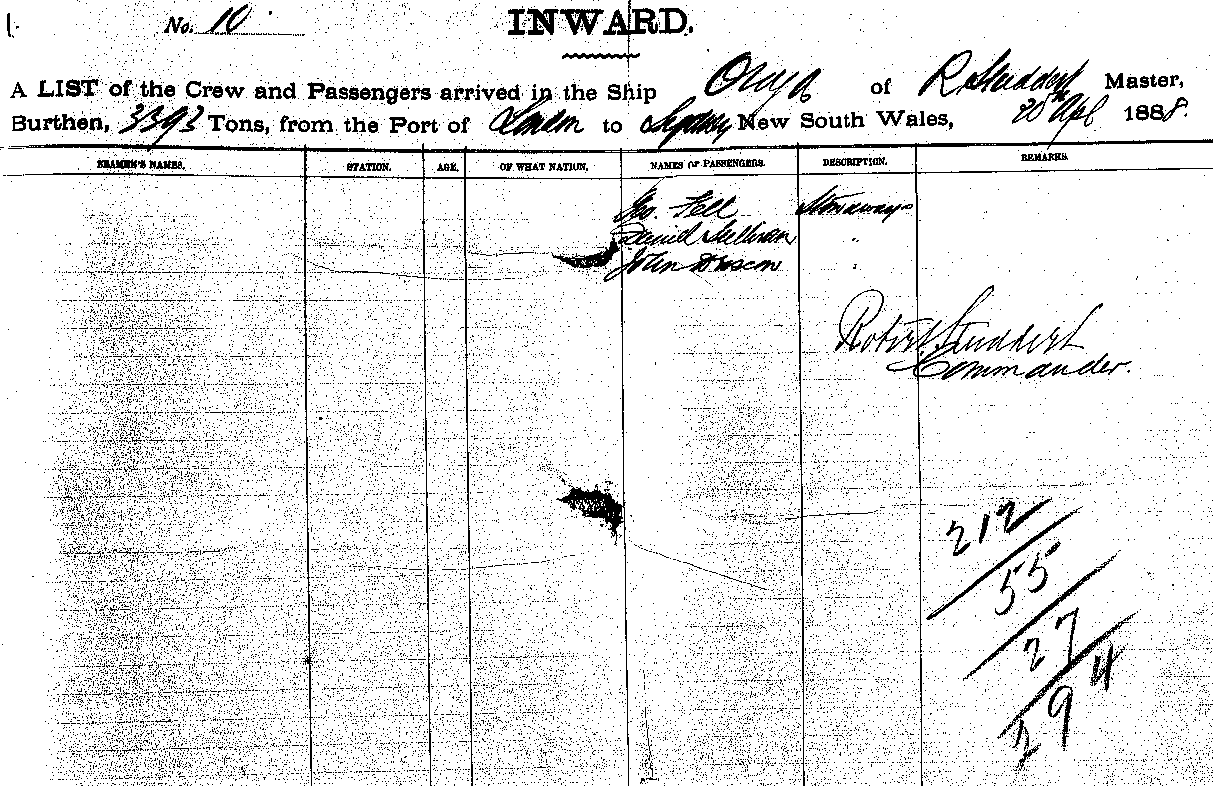 No. 10
INWARD.
A LIST of the Crew and Passengers arrived in the Ship Oruya of R. Studdert Master,
Burthen, 3393 Tons, from the Port of London to Sydney New South Wales, 20 Apl 1888.
SEAMEN'S NAMES. STATION. AGE. OF WHAT NATION. NAMES OF PASSENGERS. DESCRIPTION. REMARKS.
Geo. Fell Stowaways
Daniel Sullivan "
John "
Robert Studdert
Commander.
212
55
27
294